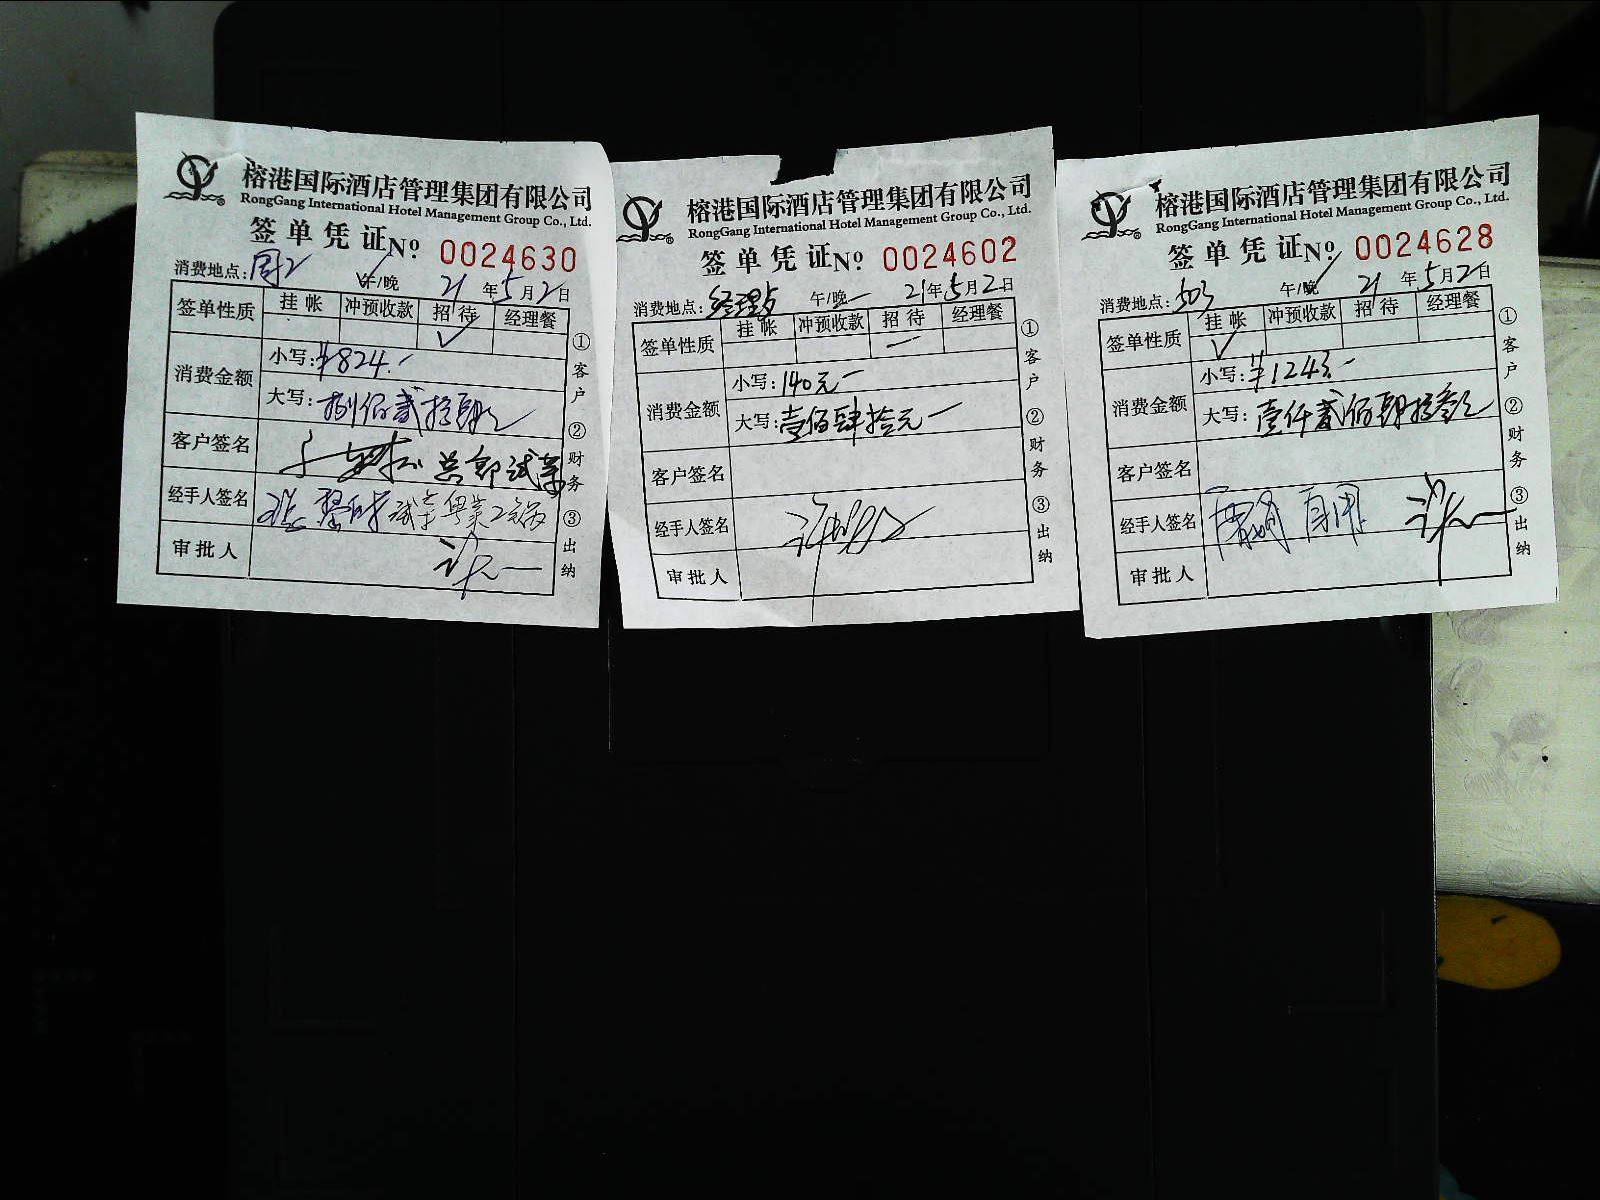 榕港国际酒店管理集团有限公司
RongGang International Hotel Management Group Co., Ltd.
签单凭证 № 0024630
消费地点: 午/晚 21年5月2日
签单性质 挂帐 冲预收款 招待 经理餐
✓
消费金额 小写: ¥824.-
大写: 捌佰贰拾肆元
客户签名 总部试菜
经手人签名 试菜
审批人
①客户 ②财务 ③出纳
榕港国际酒店管理集团有限公司
RongGang International Hotel Management Group Co., Ltd.
签单凭证 № 0024602
消费地点: 经理 午/晚 21年5月2日
签单性质 挂帐 冲预收款 招待 经理餐
消费金额 小写: 140元-
大写: 壹佰肆拾元
客户签名
经手人签名
审批人
①客户 ②财务 ③出纳
榕港国际酒店管理集团有限公司
RongGang International Hotel Management Group Co., Ltd.
签单凭证 № 0024628
消费地点: 503 午/晚 21年5月2日
签单性质 挂帐 冲预收款 招待 经理餐
✓
消费金额 小写: ¥1243.-
大写: 壹仟贰佰肆拾叁元
客户签名
经手人签名
审批人
①客户 ②财务 ③出纳